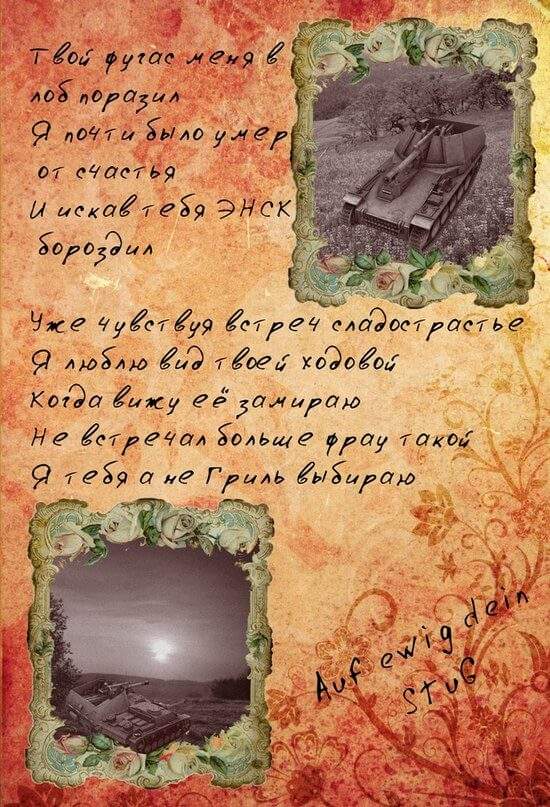 Твой фугас меня в
лоб поразил
Я почти было умер
от счастья
И искав тебя ЭНСК
бороздил
Уже чувствуя встреч сладострастье
Я люблю вид твоей ходовой
Когда вижу её замираю
Не встречал больше фрау такой
Я тебя а не Гриль выбираю
Auf ewig dein
StuG